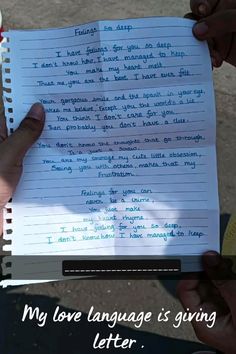 Feelings so deep
I have feelings for you so deep
I don't know how, I have managed to keep.
You make my heart melt.
Trust me, you are the best I have ever felt.
Your gorgeous smile and the spark in your eye,
Makes me believe, except you the world's a lie
You think I don't care for you.
Then probably you don't have a clue.
You don't know the thoughts that go through,
It's just a screw.
You are my courage my cute little obsession,
Seeing you with others, makes that my
frustration.
Feelings for you can
never be a crime,
You just make
my heart rhyme
I have feeling for you so deep,
I don't know how I have managed to keep.
My love language is giving
letter .